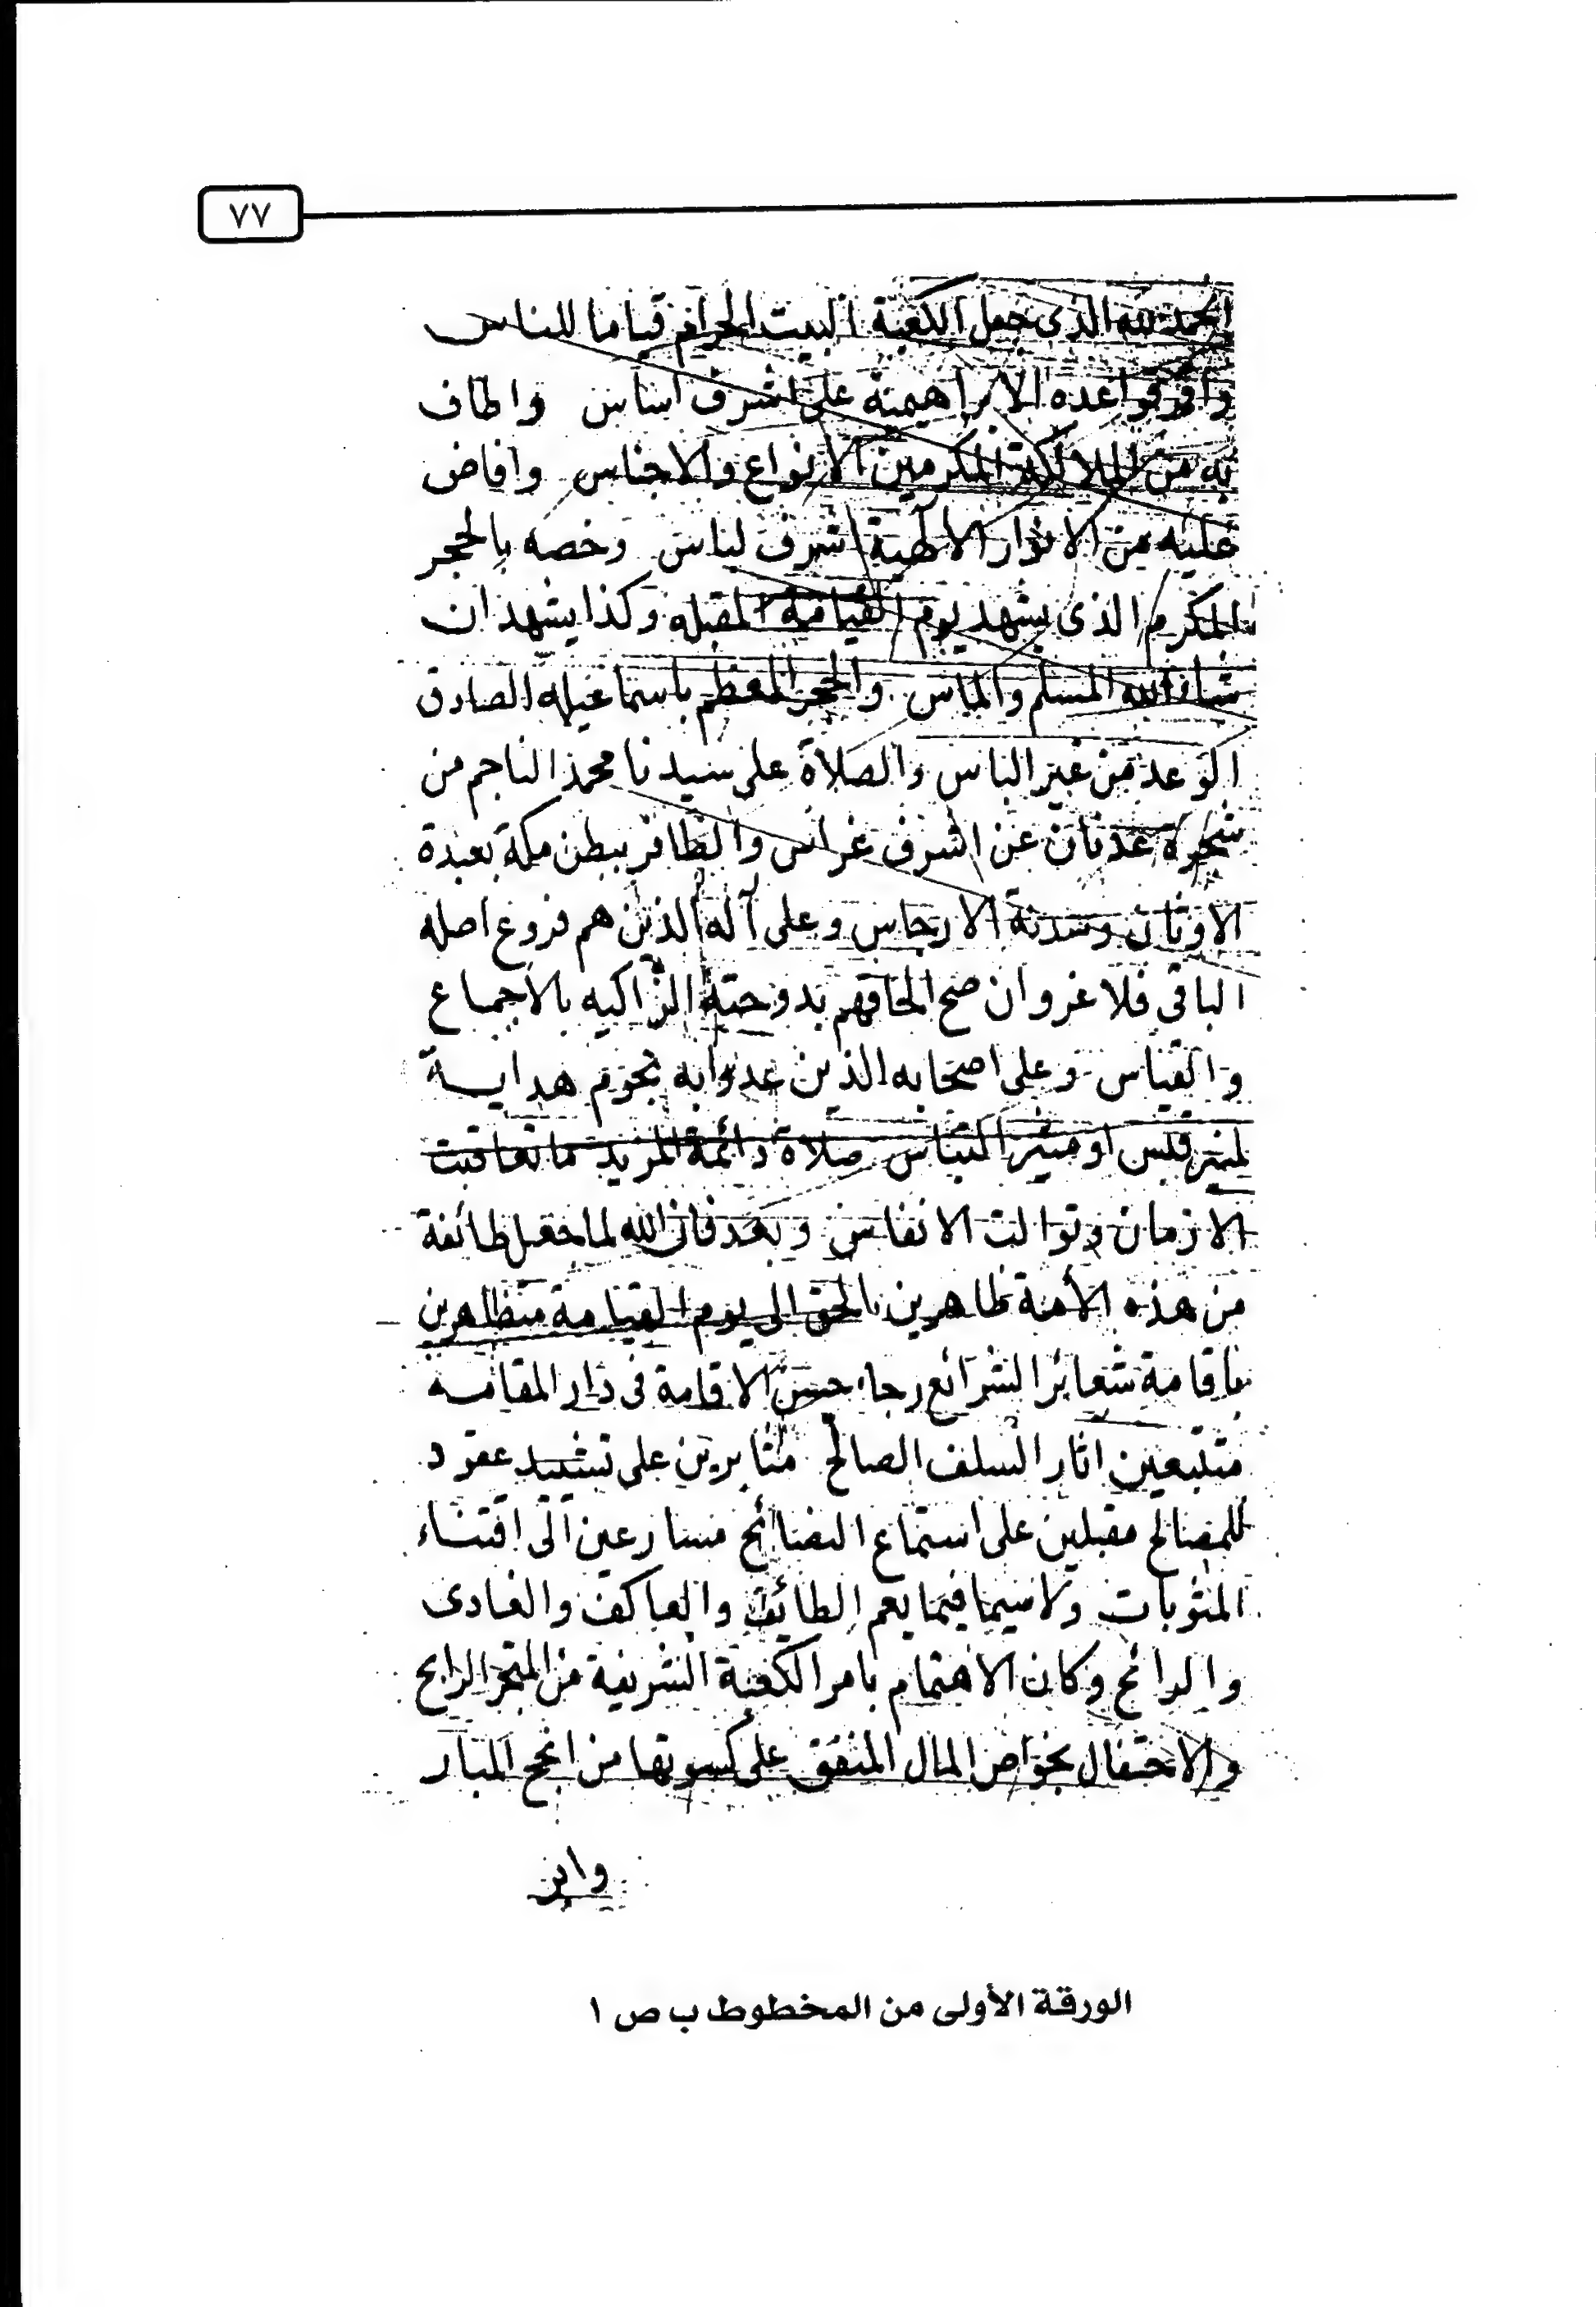 ٧٧
الحمد لله الذى جعل الكعبة البيت الحرام قياما للناس
واقر قواعده الابراهيمية على اشرف اساس واطاف
به من الملائكة المكرمين الانواع والاجناس وافاض
عليه من الانوار الالهية اشرف لباس وخصه بالحجر
المكرم الذى يشهد يوم القيامة لمقبله وكذا يشهد ان
شاء الله المسلم والماس والحجر المعظم باسماعيله الصادق
الوعد من غير الباس والصلاة على سيدنا محمد الناجم من
شجرة عدنان عن اشرف غراس والظافر ببطن مكة بعبدة
الاوثان وسدنة الارجاس وعلى آله الذين هم فروع اصله
الباقى فلا غرو ان صح الحاقهم بدوحته الزاكيه بالاجماع
والقياس وعلى اصحابه الذين عدوا به نجوم هداية
او التباس صلاة دائمة المزيد ما تعاقبت
الازمان وتوالت الانفاس وبعد فان الله لما جعل طائفة
من هذه الأمة ظاهرين بالحق الى يوم القيامة متظاهرين
باقامة شعائر الشرائع رجاء حسن الاقامة فى دار المقامه
متتبعين اثار السلف الصالح مثابرين على تشييد عقود
للمصالح مقبلين على استماع النصائح مسارعين الى اقتناء
المثوبات ولا سيما فيما يعم الطائف والعاكف والغادى
والرائح وكان الاهتمام بامر الكعبة الشريفة من المتجر الرابح
والاحتفال بخواص المال المنفق على كسوتها من انجح المبار
وابر
الورقة الأولى من المخطوط ب ص ١